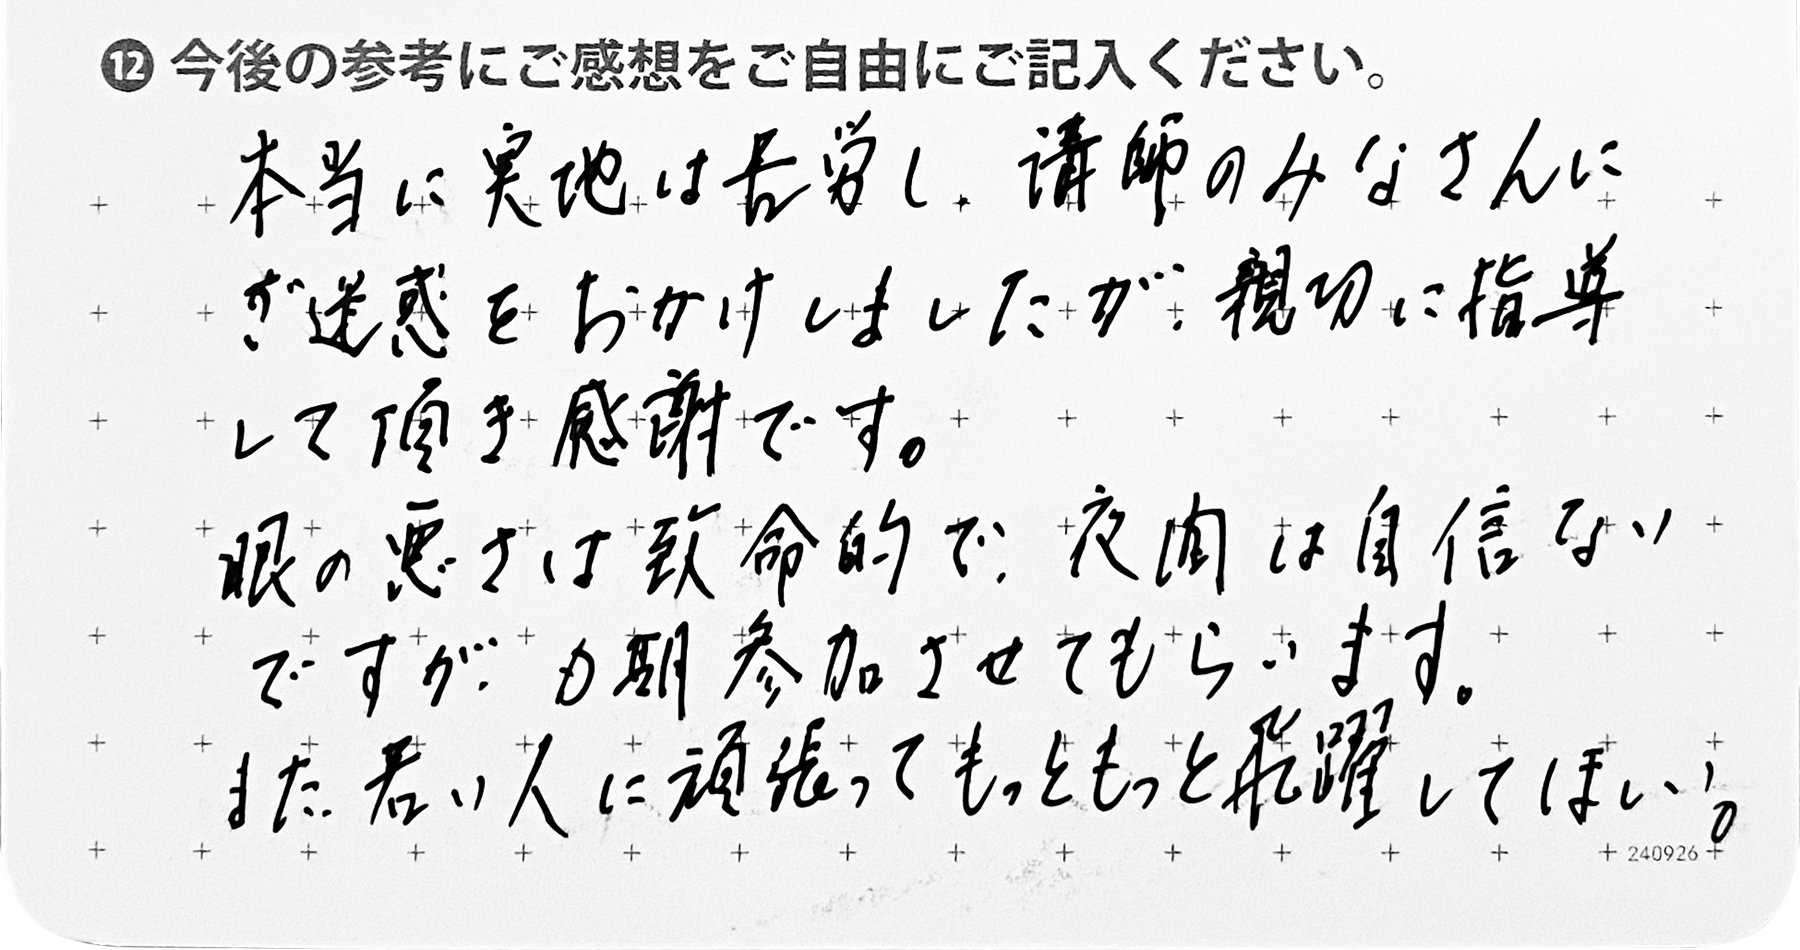 ⓬今後の参考にご感想をご自由にご記入ください。
本当に実地は苦労し、講師のみなさんに
ご迷惑をおかけしましたが、親切に指導
して頂き感謝です。
眼の悪さは致命的で、夜間は自信ない
ですが、 期参加させてもらいます。
また、若い人に頑張ってもっともっと飛躍してほしい。
240926